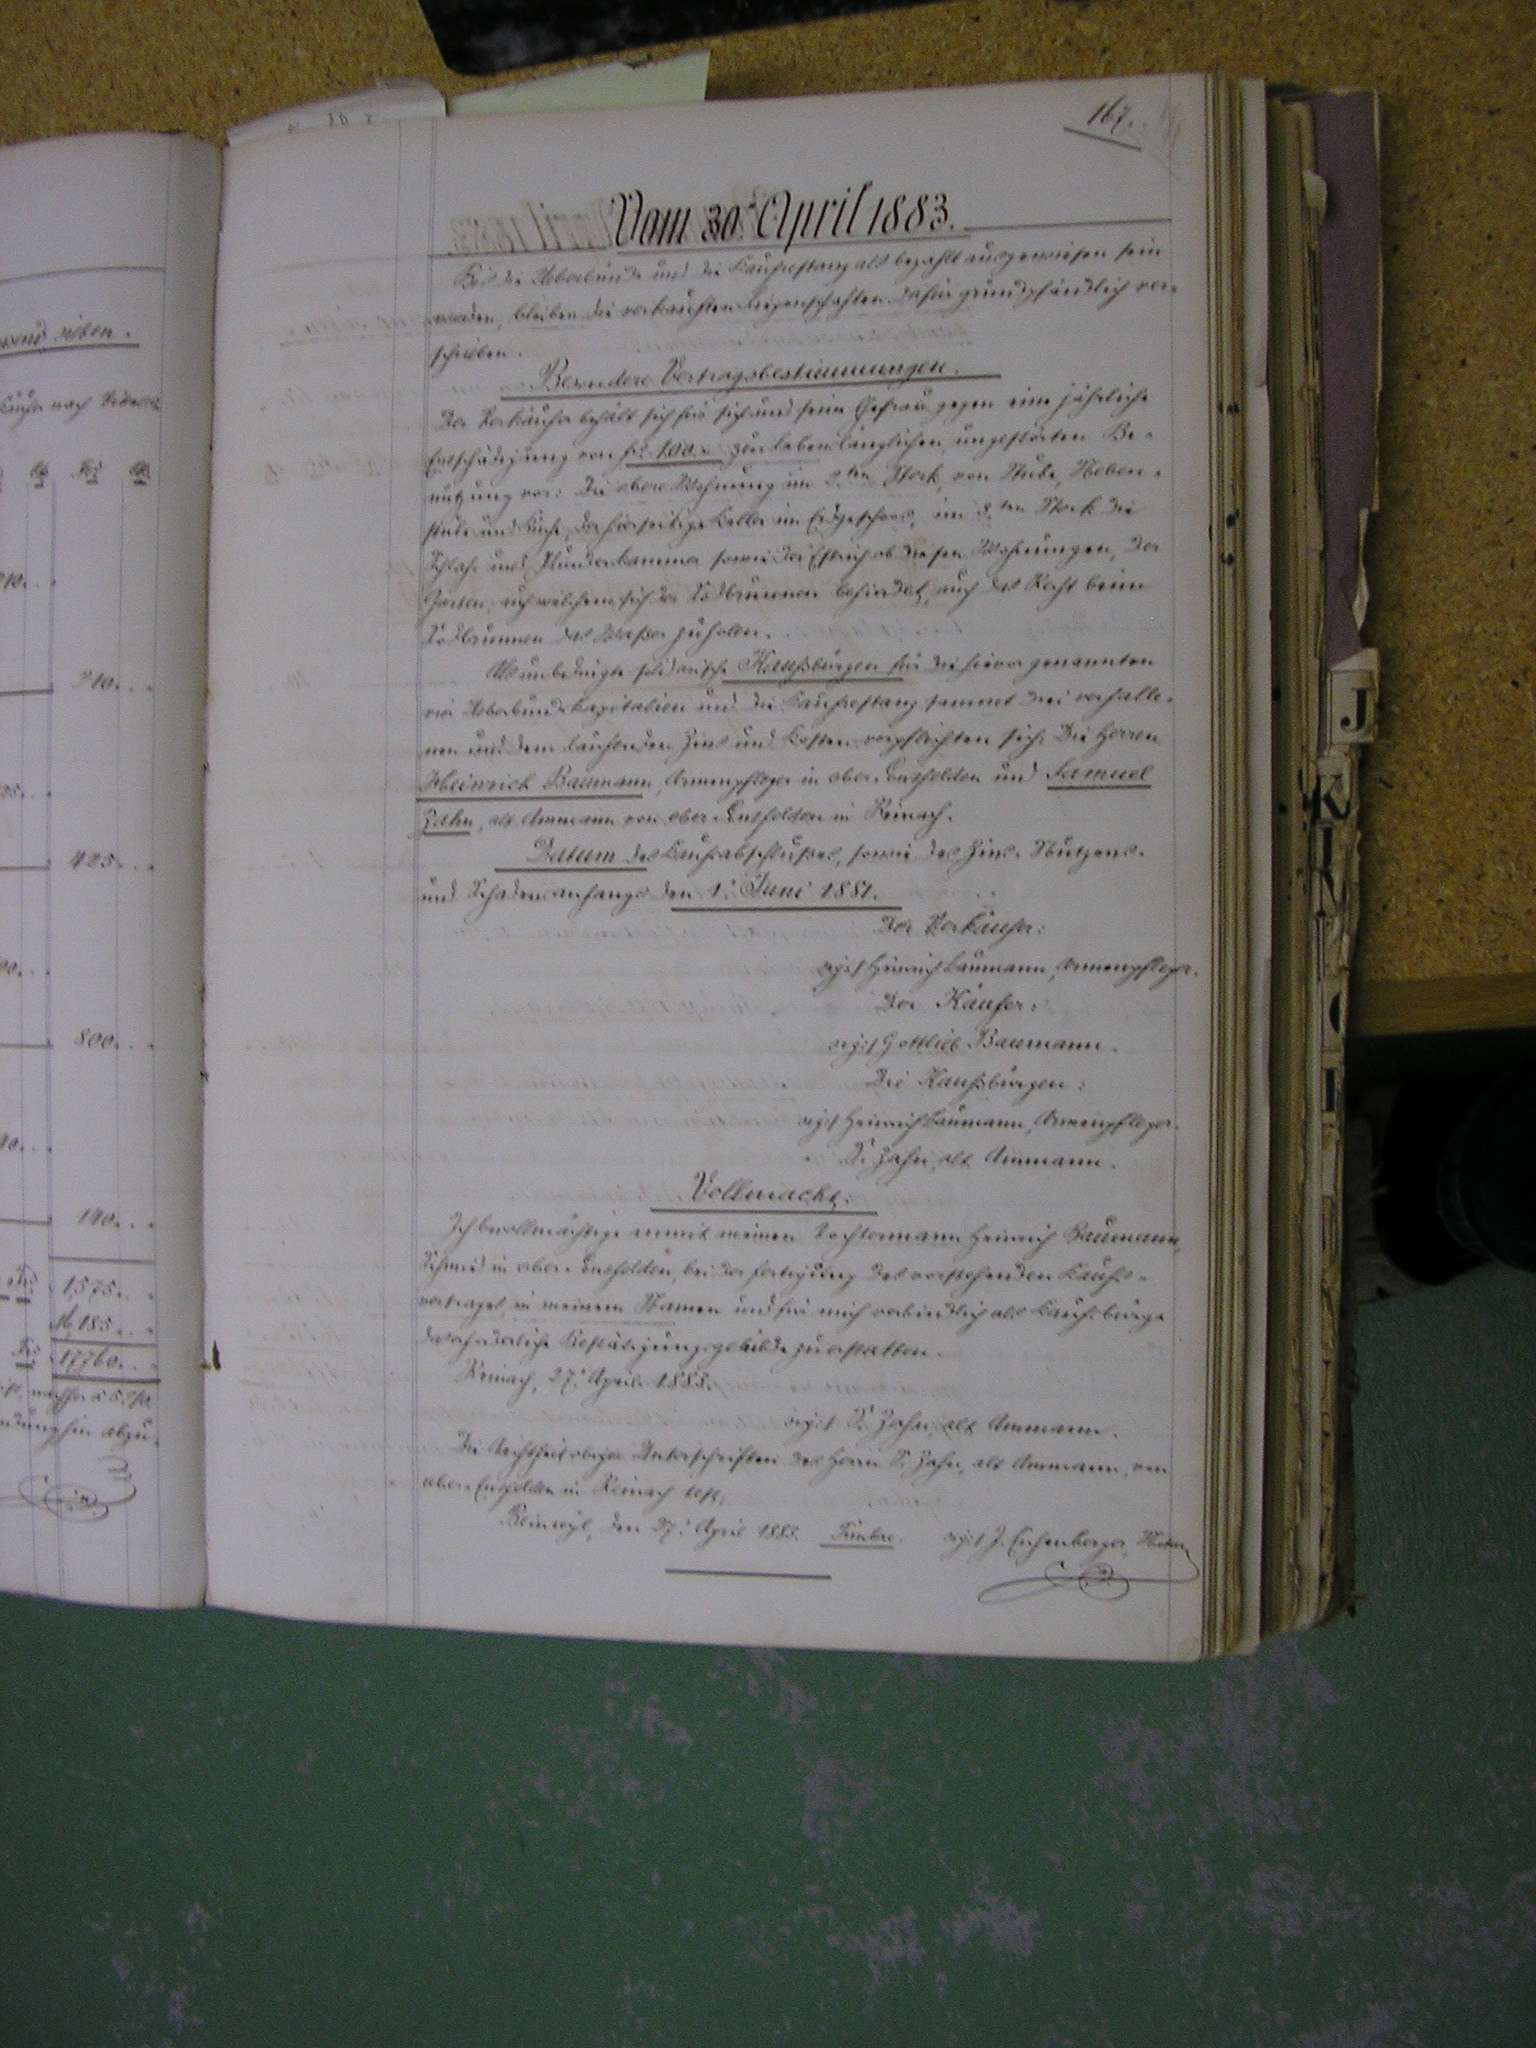 167.
Vom 30. April 1883.
Bis die Ueberbünde und die Kaufrestanz als bezahlt ausgewiesen sein
werden, bleiben die verkauften Liegenschaften dafür grundpfändlich ver-
schrieben.
Besondere Vertragsbestimmungen.
Der Verkäufer behält sich für sich und seine Ehefrau gegen eine jährliche
Entschädigung von frs. 100. zur lebenslänglichen, ungestörten Be-
nutzung vor: Die obere Wohnung im 2.ten Stock, von Stube, Neben-
stube und Küche, der hierseitige Keller im Erdgeschoss, im 3.ten Stock die
Schlaf- und Plunderkammer sowie der Estrich ob diesen Wohnungen, der
Garten, auf welchem sich der Sodbrunnen befindet, auch das Recht beim
Sodbrunnen das Waßer zu holen.
Als unbedingte solidarische Kaufsbürgen für die hievor genannten
vier Ueberbundskapitalien und die Kaufrestanz sammt drei verfalle-
nen und dem laufenden Zins und Kosten verpflichten sich: Die Herren
Heinrich Baumann, Armenpfleger in ober-Entfelden und Samuel
Zehn, alt Ammann von ober-Entfelden in Reinach.
Datum des Kaufsabschlußes, sowie des Zins- Nutzens-
und Schadensanfangs den 1. Juni 1881.
Der Verkäufer:
sig: Heinrich Baumann, Armenpfleger.
Der Käufer:
sig: Gottlieb Baumann.
Die Kaufsbürgen:
sig: Heinrich Baumann, Armenpfleger.
" S. Zehn, alt Ammann.
Vollmacht.
Ich bevollmächtige anmit meinen Tochtermann Heinrich Baumann,
Schmid in ober-Entfelden, bei der Fertigung des vorstehenden Kaufs-
vertrages, in meinem Namen und für mich verbindlich als Kaufsbürge
das erforderliche Bestätigungsgelübde zu erstatten.
Reinach, 27. April 1883.
sig: S. Zehn, alt Ammann.
Die Aechtheit obiger Unterschriften des Herrn S. Zehn, alt Ammann, von
ober-Entfelden in Reinach best.
Beinwyl, den 27. April 1883. Timbre. sig: J. Eichenberger, Notar.
sieben.
Käufer nach
210.
425.
800.
140.
1,575.
16,185.
17,760.
J
K
L